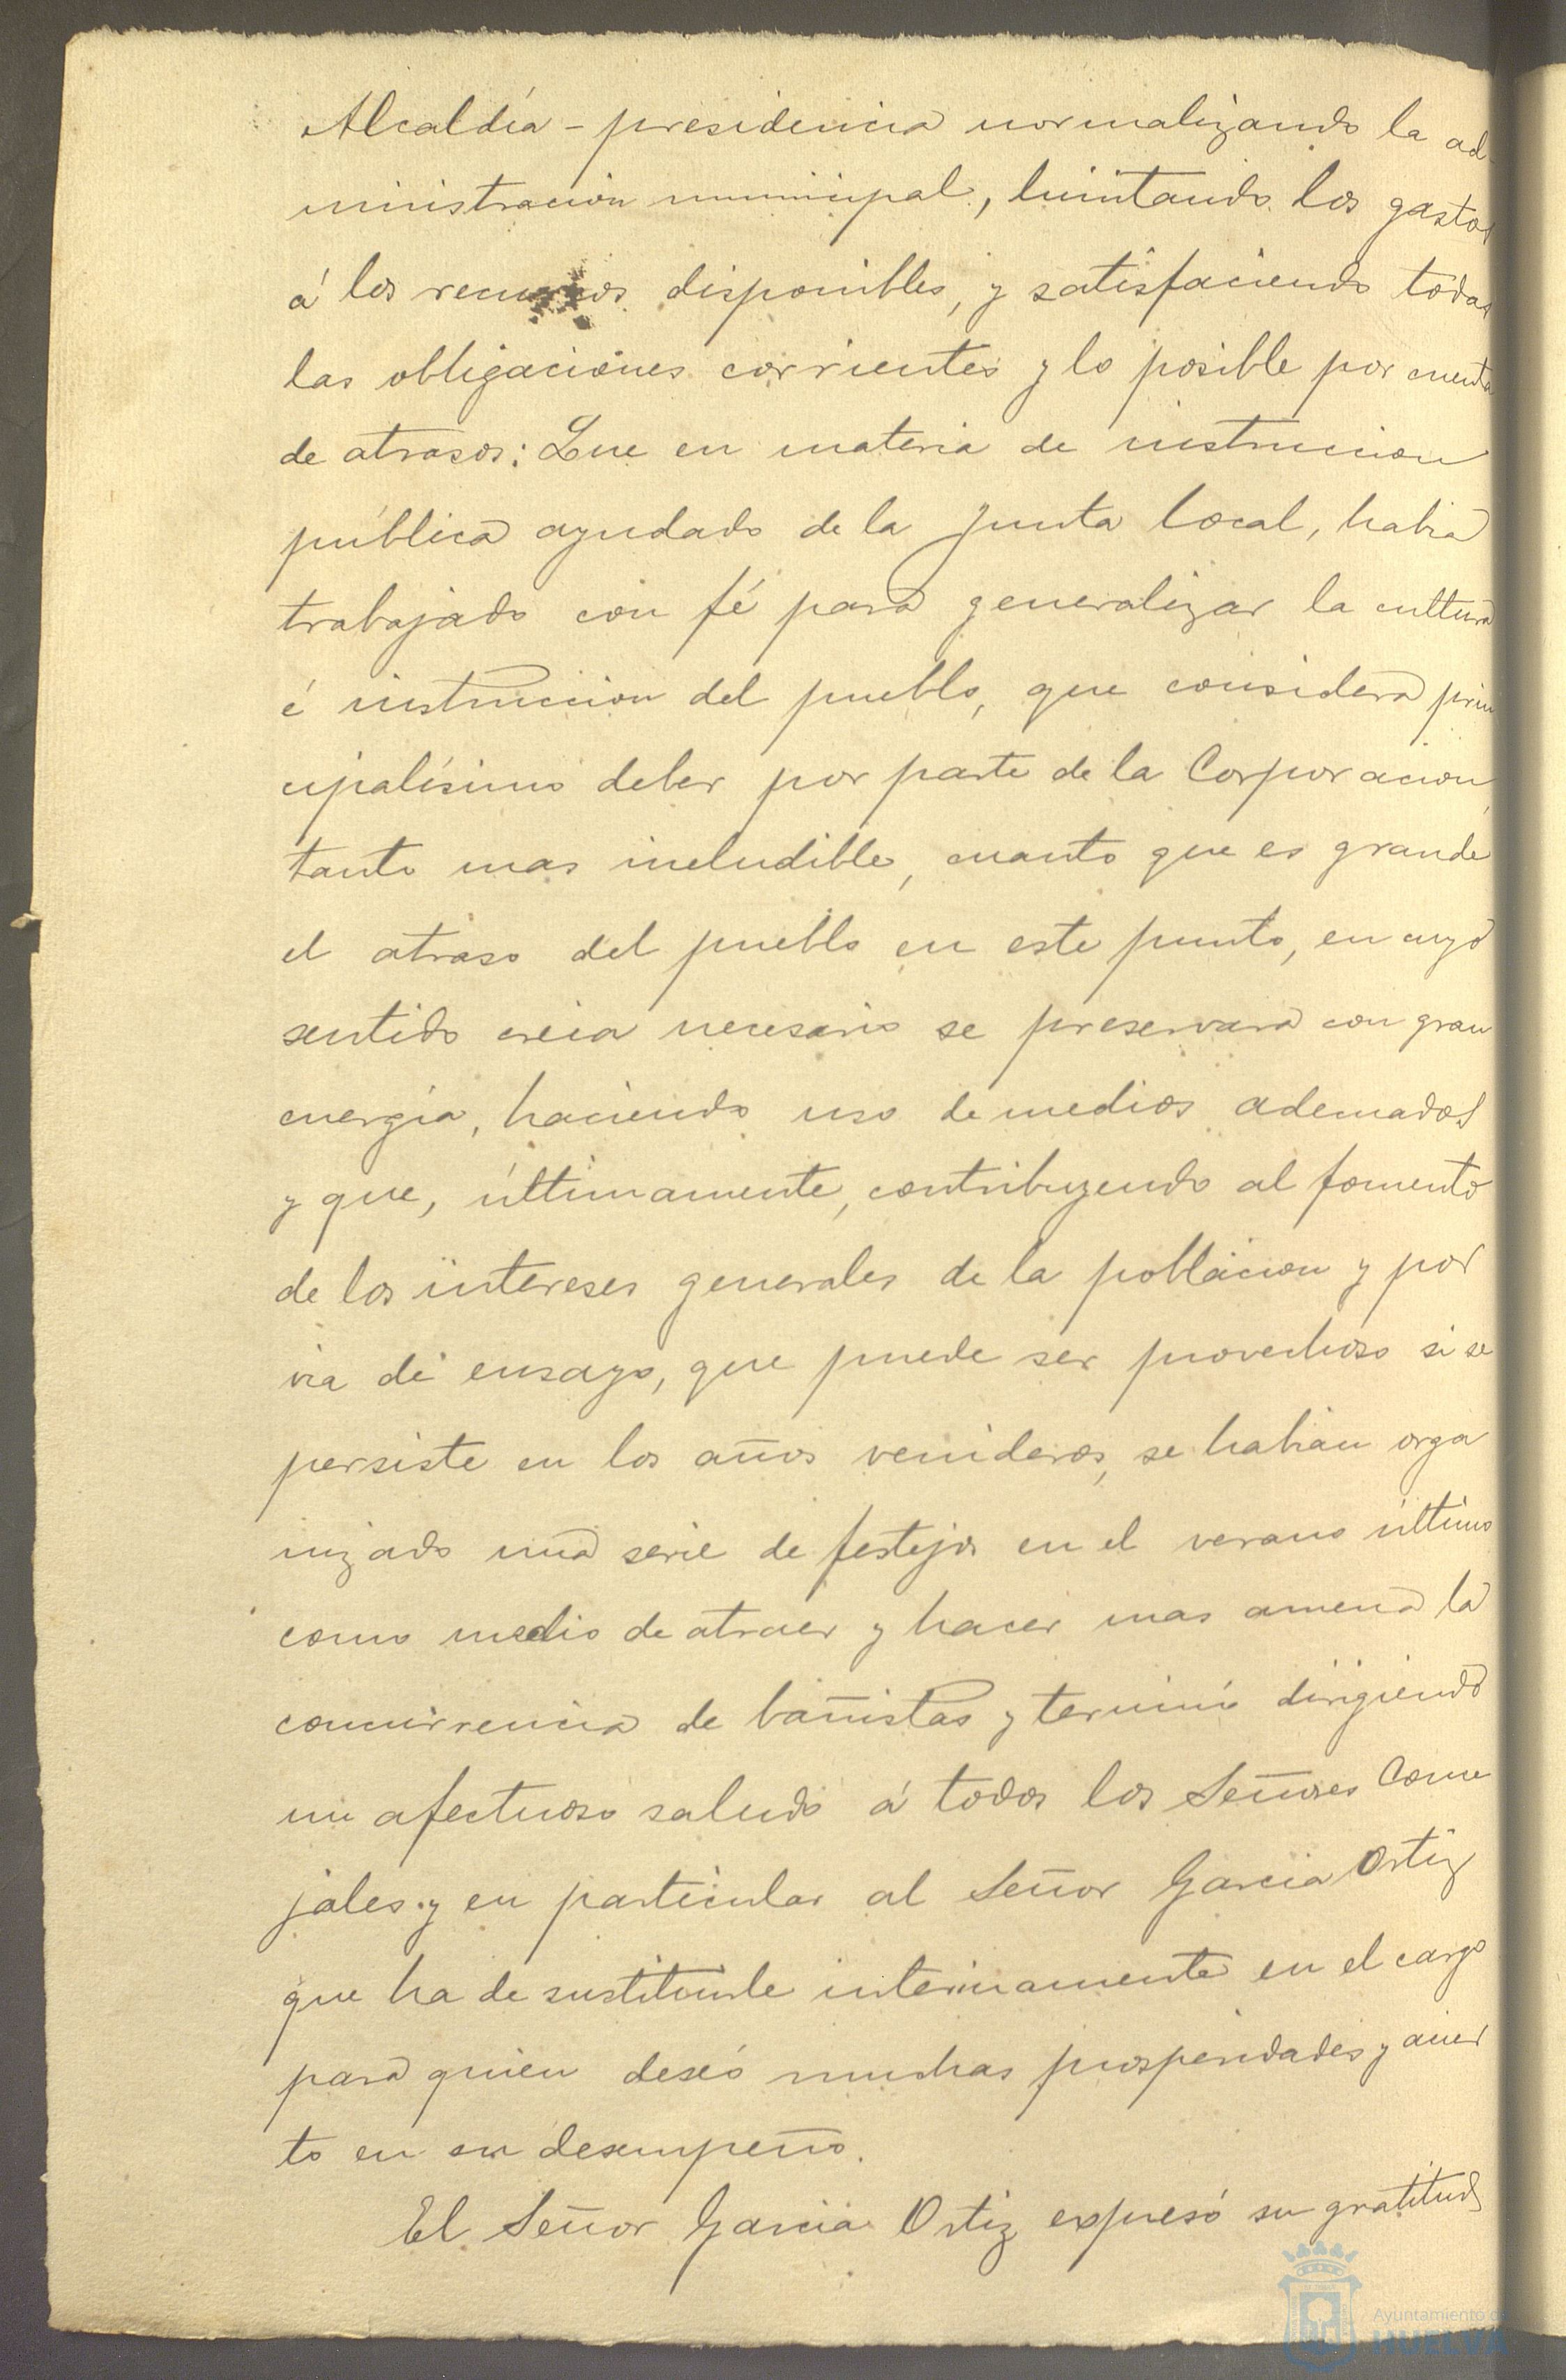 Alcaldía - presidencia normalizando la ad
ministracion municipal, limitando los gastos
á los recursos disponibles, y satisfaciendo todas
las obligaciones corrientes y lo posible por cuenta
de atrasos: Que en materia de instruccion
pública ayudado de la Junta local, habia
trabajado con fé para generalizar la cultura
é instruccion del pueblo, que considera prin
cipalísimo deber por parte de la Corporacion,
tanto mas ineludible, cuanto que es grande
el atraso del pueblo en este punto, en cuyo
sentido creia necesario se preservara con gran
energia, haciendo uso de medios adecuados
y que, últimamente, contribuyendo al fomento
de los intereses generales de la poblacion y por
via de ensayo, que puede ser provechoso si se
persiste en los años venideros, se habian orga
nizado una serie de festejos en el verano último
como medio de atraer y hacer mas amena la
concurrencia de bañistas y terminó dirigiendo
un afectuoso saludo á todos los Señores Conce
jales y en particular al Señor Garcia Ortiz
que ha de sustituirle interinamente en el cargo
para quien deseó muchas prosperidades y acier
to en su desempeño.
El Señor Garcia Ortiz expresó su gratitud
Ayuntamiento de
HUELVA